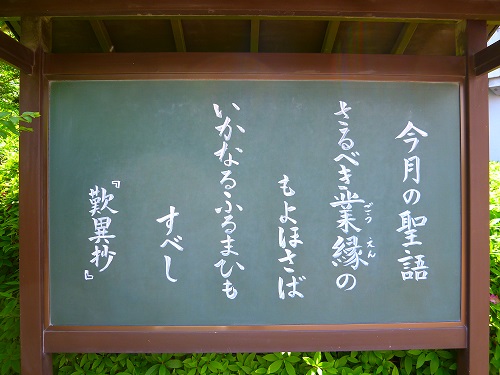 今月の聖語
さるべき業縁の
ごうえん
もよほさば
いかなるふるまひも
すべし
『歎異抄』